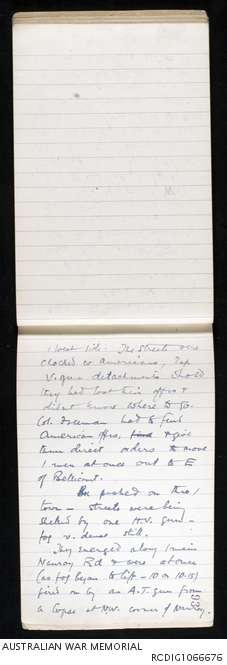 west side. The streets were
choked w Americans, esp
V. gun detachments who sd
they had lost their offrs &
didnt know where to go.
Col. Freeman had to find
American offrs, & give
them direct orders to move
men at once out to E
of Bellicourt.
pushed on thro
town - streets were being
shelled by one H.V. gun -
fog v. dense still.
They emerged along main
Nauroy Rd & were at once
(as fog began to lift - 10 or 10.15)
fired on by an A.T. gun from
a copse at N.W. corner of Nauroy.
AUSTRALIAN WAR MEMORIAL
RCDIG1066676